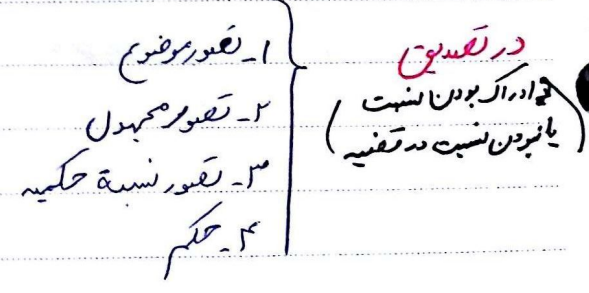 در تصدیق
(ادراک بودن نسبت
یا نبودن نسبت در قضیه)
۱ـ تصور موضوع
۲ـ تصور محمول
۳ـ تصور نسبة حکمیه
۴ـ حکم